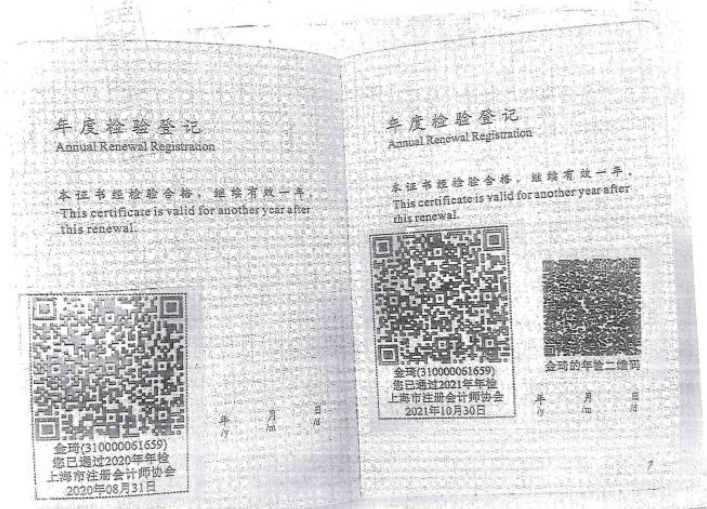 年度检验登记
Annual Renewal Registration
本证书经检验合格，继续有效一年。
This certificate is valid for another year after
this renewal.
金琦(310000061659)
您已通过2020年年检
上海市注册会计师协会
2020年08月31日
年 月 日
/y /m /d
年度检验登记
Annual Renewal Registration
本证书经检验合格，继续有效一年。
This certificate is valid for another year after
this renewal.
金琦(310000061659)
您已通过2021年年检
上海市注册会计师协会
2021年10月30日
金琦的年检二维码
年 月 日
/y /m /d
7